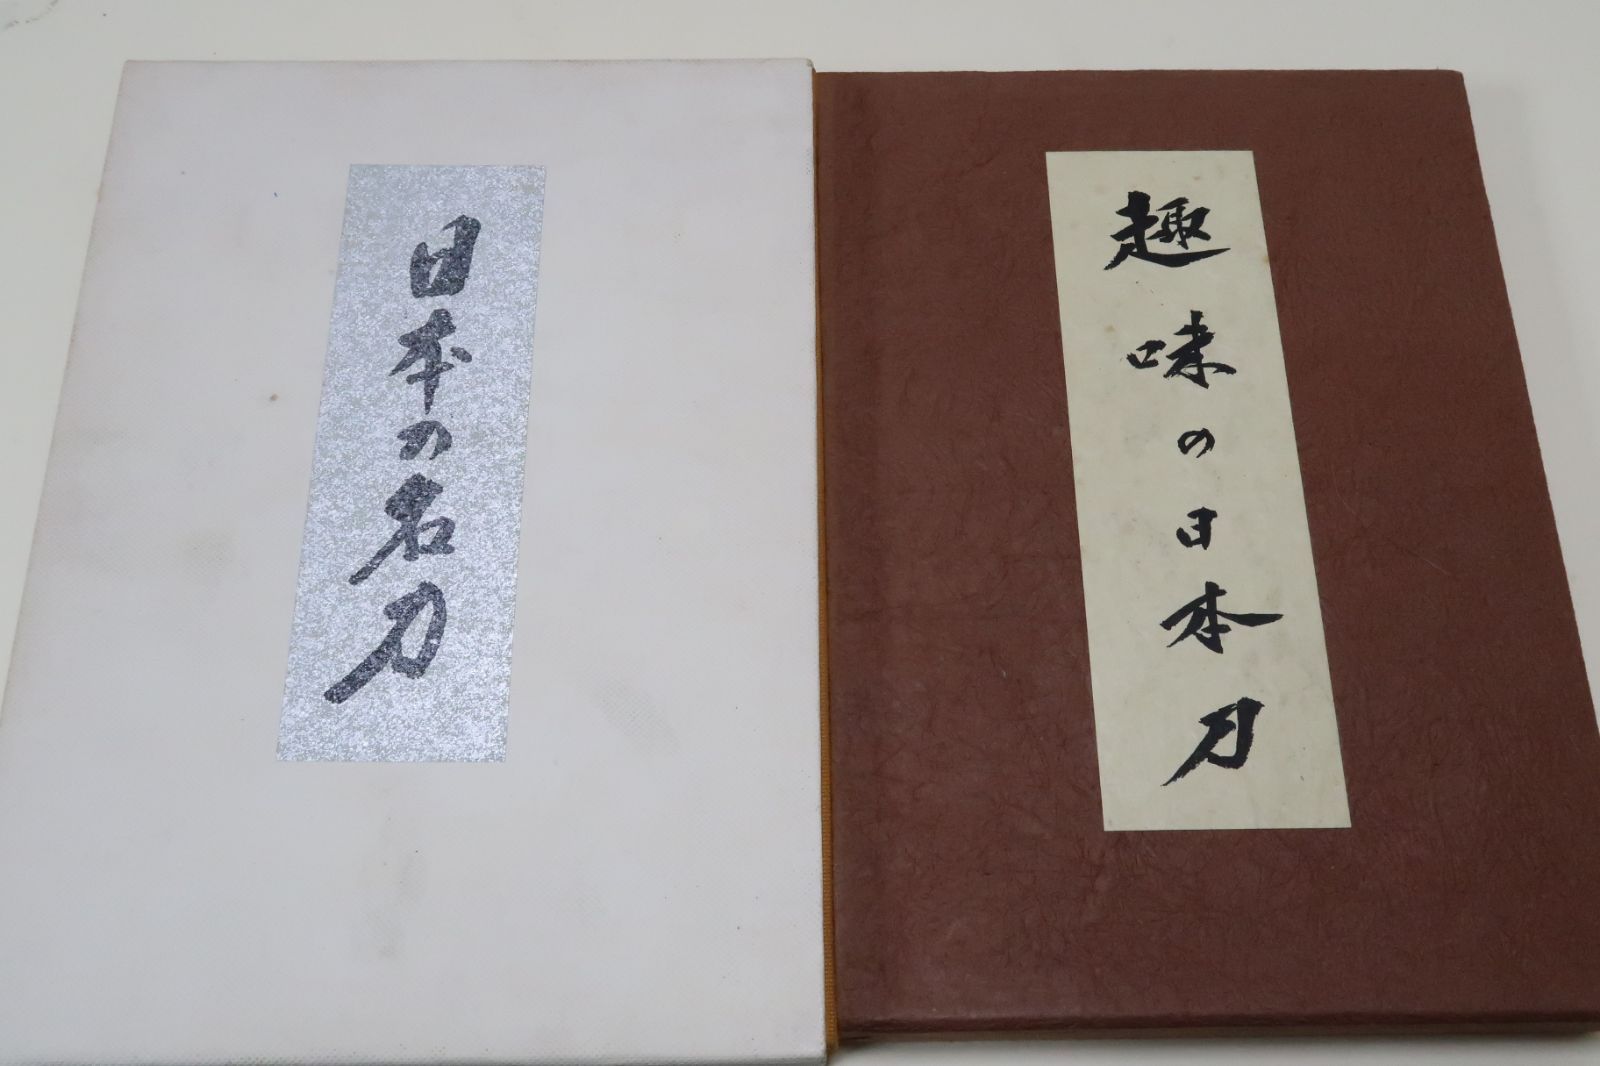 日本の名刀
趣味の日本刀